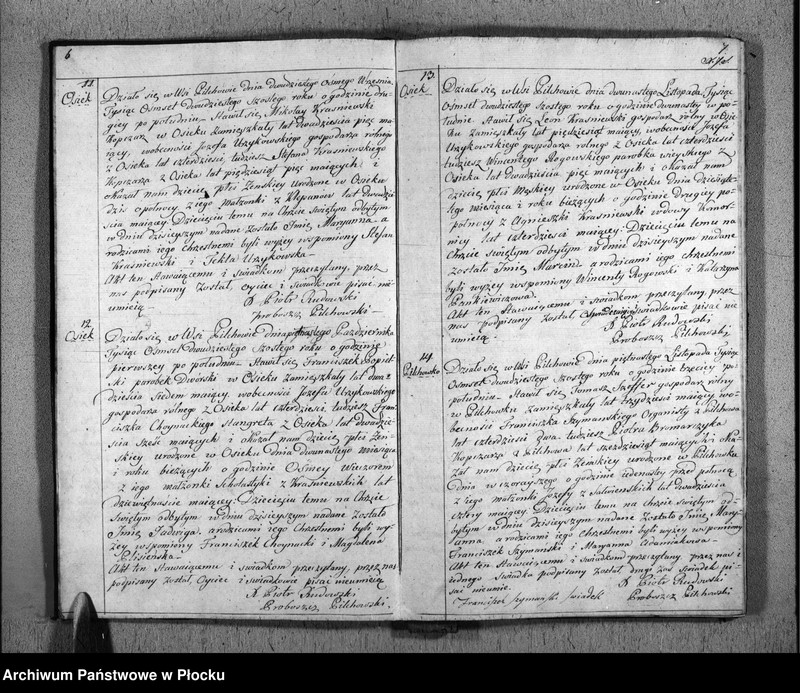 6
11.
Osiek
Działo się w Wsi Pilchowie dnia dwudziestego Osmego Września
Tysiąc Osmset Dwudziestego Szostego roku o godzinie dru-
giey po południu. Stawił się Mikołay Krasniewski
Kopczarz w Osieku zamięszkały lat dwadzieścia pięc ma-
iący, wobecności Jozefa Uzykowskiego gospodarza rolnego
z Osieka lat czterdzieści, tudziesz Stefana Krasniewskiego
Kopczarza z Osieka lat pięćdziesiąt pięc maiących i
okazał nam dziecię płci Zenskiey urodzone w Osieku
dziś o pułnocy z iego Małżonki z lat dwadzie-
scia maiący Dziecięciu temu na chrzcie świętym odbytym
w dniu dzisieyszym nadane zostało Imię Maryanna a
rodzicami iego chrzestnemi byli wyżey wspomiony Stefan
Krasniewski i Tekla Uzykowska
Akt ten stawaiącemu i swiadkom przeczytany, przez
nas podpisany został, Oyciec i Swiadkowie pisać nie-
umieią.
X Piotr Rudowski
Proboszcz Pilchowski
12.
Osiek
Działo się w Wsi Pilchowie dnia Października
Tysiąc Osmset Dwudziestego Szostego roku o godzinie
pierwszey po południu. Stawił się Franciszek
parobek Dworski w Osieku zamięszkały lat dwa-
dzieścia Siedem maiący wobecności Jozefa Uzykowskiego
gospodarza rolnego z Osieka lat czterdzieści, tudziesz Fran-
ciszka Choynackiego Stangreta z Osieka lat dwadzie-
ścia Szesć maiących i okazał nam dziecię płci Zen-
skiey urodzone w Osieku Dnia dwunastego miesiąca
i roku bieżących o godzinie Osmey Wieczorem
z iego małżonki Scholastyki z Krasniewskich lat
dziewiętnaście maiącey: Dziecięciu temu na Chrzcie
Swiętym odbytym w Dniu dzisieyszym nadane zostało
Imię Jadwiga, a rodzicami iego Chrzestnemi byli wy-
żey wspomiony Franciszek Choynacki i Magdalena
Akt ten Stawaiącemu i swiadkom przeczytany, przez nas
podpisany został, Oyciec i swiadkowie pisać nieumieią
X Piotr Rudowski
Proboszcz Pilchowski.
7.
13.
Osiek
Działo się w Wsi Pilchowie dnia dwunastego Listopada Tysiąc
Osmset dwudziestego Szostego roku o godzinie dwunastey w po-
łudnie. Stawił się Leon Krasniewski gospodarz rolny w Osie-
ku zamięszkały lat pięćdziesiąt maiący, wobecności Jozefa
Uzykowskiego gospodarza rolnego z Osieka lat czterdziesci
tudziesz Wincentego Rogowskiego parobka wieyskiego z
Osieka lat dwadzieścia pięc maiących i okazał nam
dziecię płci Męskiey urodzone w Osieku dnia dziesięte-
tego miesiąca i roku bieżących o godzinie drugiey po
pułnocy z Agnieszki Krasniewski wdowy
lat czterdzieści maiącey: Dziecięciu temu na
Chrzcie Swiętym odbytym w Dniu dzisieyszym nadane
zostało Imię Marcin a rodzicami iego chrzestnemi
byli wyżey wspomiony Wincenty Rogowski i Katarzyna
Pankiewiczowa.
Akt ten Stawaiącemu i swiadkom przeczytany, przez
nas podpisany został Swiadkowie pisać nie
umieią.
X Piotr Rudowski
Proboszcz Pilchowski
14.
Pilchowko
Działo się w Wsi Pilchowie dnia piętnastego Listopada Tysiąc
Osmset dwudziestego Szostego roku o godzinie trzeciey po
południu. Stawił się Tomasz Szeffer gospodarz rolny
w Pilchowku zamięszkały lat trzydziesci maiący wo-
becności Franciszka Szymanskiego Organisty z Pilchowa
lat czterdziesci dwa, tudziesz Piotra Bromarczyka
Kopczarza z Pilchowa lat szesdziesiąt maiących i oka-
zał nam dziecię płci Zenskiey urodzone w Pilchowku
dnia wczorayszego o godzinie iedenastey przed pułnocą
z iego małżonki Jozefy z lat dwadziescia
cztery maiącey Dziecięciu temu na chrzcie swiętym od-
bytym w Dniu dzisieyszym nadane zostało Imię Mary-
anna a rodzicami iego chrzestnemi byli wyżey wspomiony
Franciszek Szymanski i Maryanna Adamiakowa.
Akt ten Stawaiącemu i swiadkom przeczytany przez nas i
iednego Swiadka podpisany został drugi zas Swiadek pi-
sać nieumie.
X Piotr Rudowski
Franciszek Szymanski swiadek
Proboszcz Pilchowski
Archiwum Państwowe w Płocku